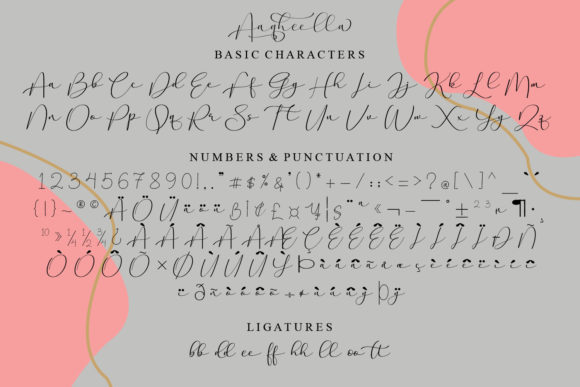 Auqheella
BASIC CHARACTERS
Aa Bb Cc Dd Ee Ff Gg Hh Ii Jj Kk Ll Mm
Nn Oo Pp Qq Rr Ss Tt Uu Vv Ww Xx Yy Zz
NUMBERS & PUNCTUATION
12345678901..“#$%&'()*+−/::<=>?@[\]^
{|}~®©ÄÖÜäöüß|¢£¤¥¦§¨ª«¬-¯°±²³
¼½¾ÀÁÂÃÅÆÇÈÉÊËÌÍÎÏÐÑ
ÒÓÔÕ×ØÙÚÛÝÞàáâãåæçèéêëìíî
ïðñòóôõ÷øùúûýþÿ
LIGATURES
bb dd ee ff hh ll oo tt